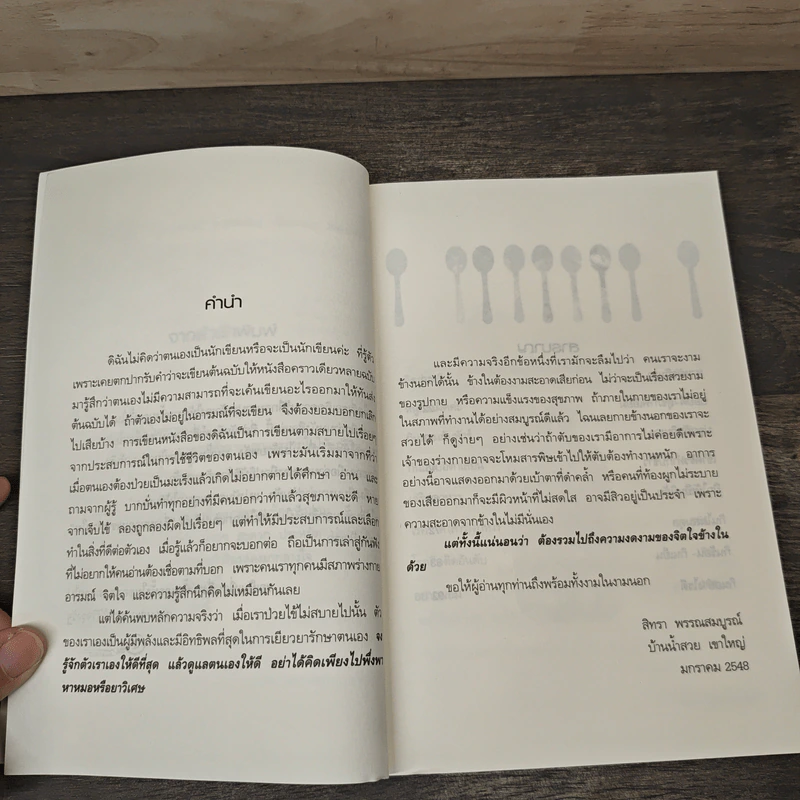 คำนำ
ดิฉันไม่คิดว่าตนเองเป็นนักเขียนหรือจะเป็นนักเขียนค่ะ ที่รู้ตัว
เพราะเคยตกปากรับคำว่าจะเขียนต้นฉบับให้หนังสือคราวเดียวหลายฉบับ
มารู้สึกว่าตนเองไม่มีความสามารถที่จะเค้นเขียนอะไรออกมาให้ทันส่ง
ต้นฉบับได้ ถ้าตัวเองไม่อยู่ในอารมณ์ที่จะเขียน จึงต้องยอมบอกยกเลิก
ไปเสียบ้าง การเขียนหนังสือของดิฉันเป็นการเขียนตามสบายไปเรื่อยๆ
จากประสบการณ์ในการใช้ชีวิตของตนเอง เพราะมันเริ่มมาจากที่ว่า
เมื่อตนเองต้องป่วยเป็นมะเร็งแล้วเกิดไม่อยากตายได้ศึกษา อ่าน และ
ถามจากผู้รู้ บากบั่นทำทุกอย่างที่มีคนบอกว่าทำแล้วสุขภาพจะดี หาย
จากเจ็บไข้ ลองถูกลองผิดไปเรื่อยๆ แต่ทำให้มีประสบการณ์และเลือก
ทำในสิ่งที่ดีต่อตัวเอง เมื่อรู้แล้วก็อยากจะบอกต่อ ถือเป็นการเล่าสู่กันฟัง
ที่ไม่อยากให้คนอ่านต้องเชื่อตามที่บอก เพราะคนเราทุกคนมีสภาพร่างกาย
อารมณ์ จิตใจ และความรู้สึกนึกคิดไม่เหมือนกันเลย
แต่ได้ค้นพบหลักความจริงว่า เมื่อเราป่วยไข้ไม่สบายไปนั้น ตัว
ของเราเองเป็นผู้มีพลังและมีอิทธิพลที่สุดในการเยียวยารักษาตนเอง จง
รู้จักตัวเราเองให้ดีที่สุด แล้วดูแลตนเองให้ดี อย่าได้คิดเพียงไปพึ่งพา
หาหมอหรือยาวิเศษ
และมีความจริงอีกข้อหนึ่งที่เรามักจะลืมไปว่า คนเราจะงาม
ข้างนอกได้นั้น ข้างในต้องงามสะอาดเสียก่อน ไม่ว่าจะเป็นเรื่องสวยงาม
ของรูปกาย หรือความแข็งแรงของสุขภาพ ถ้าภายในกายของเราไม่อยู่
ในสภาพที่ทำงานได้อย่างสมบูรณ์ดีแล้ว ไฉนเลยกายข้างนอกของเราจะ
สวยได้ ก็ดูง่ายๆ อย่างเช่นว่าถ้าตับของเรามีอาการไม่ค่อยดีเพราะ
เจ้าของร่างกายอาจจะโหมสารพิษเข้าไปให้ตับต้องทำงานหนัก อาการ
อย่างนี้อาจแสดงออกมาด้วยเบ้าตาที่ดำคล้ำ หรือคนที่ท้องผูกไม่ระบาย
ของเสียออกมาก็จะมีผิวหน้าที่ไม่สดใส อาจมีสิวอยู่เป็นประจำ เพราะ
ความสะอาดจากข้างในไม่มีนั่นเอง
แต่ทั้งนี้แน่นอนว่า ต้องรวมไปถึงความงดงามของจิตใจข้างใน
ด้วย
ขอให้ผู้อ่านทุกท่านถึงพร้อมทั้งงามในงามนอก
สิทรา พรรณสมบูรณ์
บ้านน้ำสวย เขาใหญ่
มกราคม 2548
สารบาญ